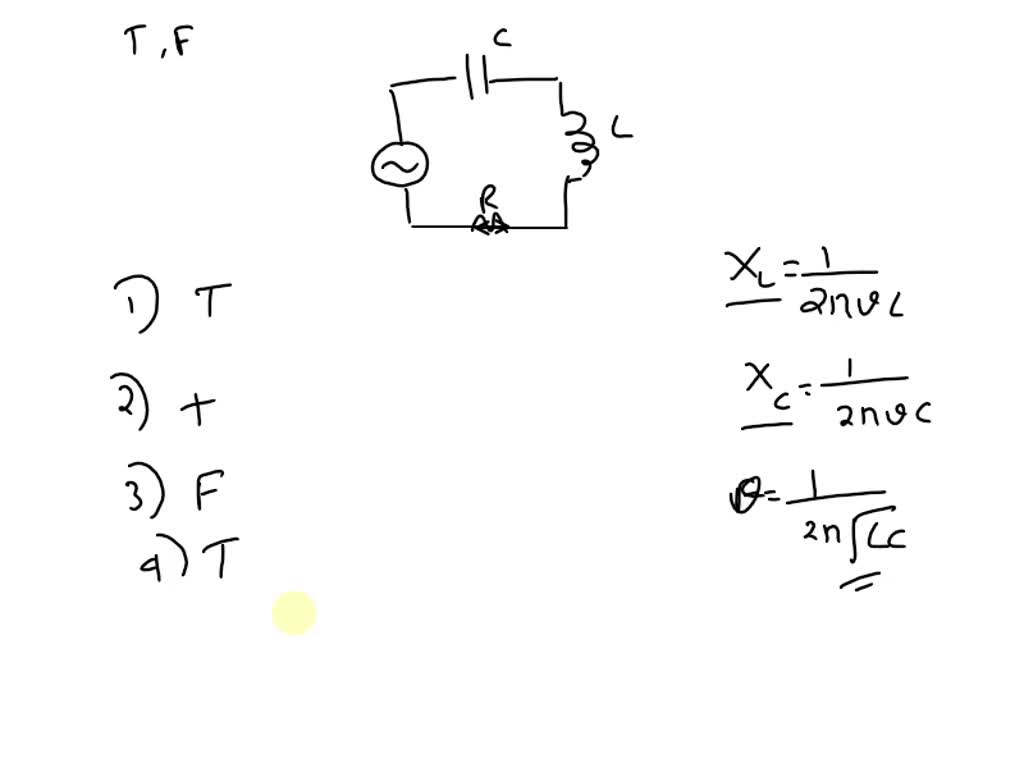 T, F
C
L
R
1) T
2) +
3) F
4) T
X_L = 1 / 2πνL
X_C = 1 / 2πνC
ν = 1 / 2π√LC